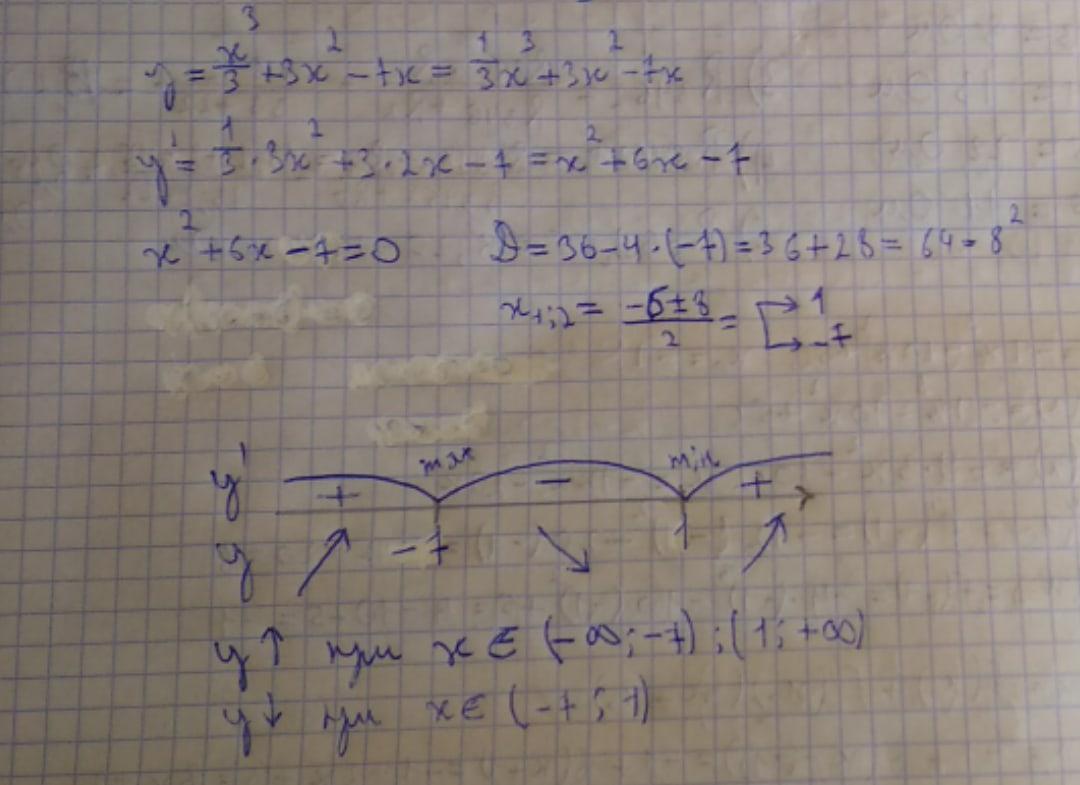 y = x³/3 + 3x² - 7x = 1/3 x³ + 3x² - 7x
y' = 1/3 · 3x² + 3 · 2x - 7 = x² + 6x - 7
x² + 6x - 7 = 0 D = 36 - 4 · (-7) = 36 + 28 = 64 = 8²
x₁;₂ = (-6 ± 8)/2 = 1
-7
y' + max - min +
y -7 1
y ↑ при x ∈ (-∞; -7) ; (1; +∞)
y ↓ при x ∈ (-7; 1)